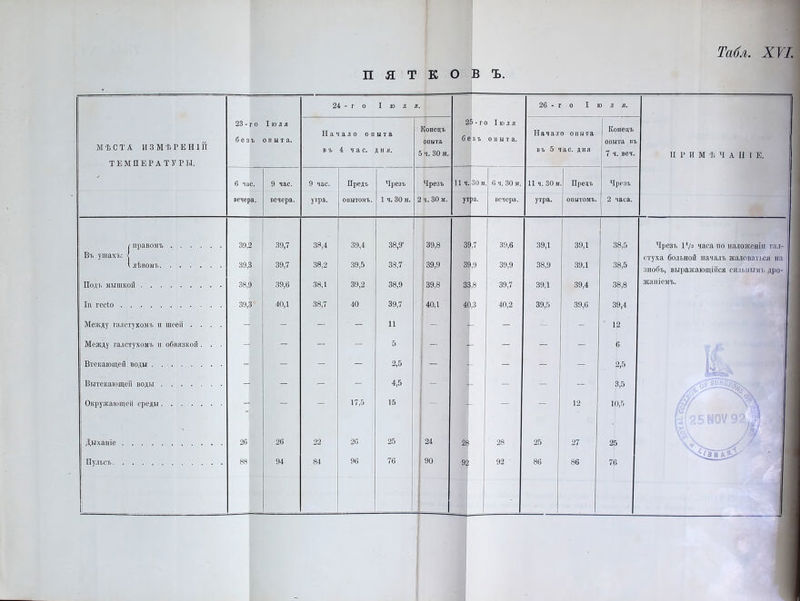 Табл. XVI.
ПЯТКОВЪ.
МѢСТА ИЗМѢРЕНІЙ ТЕМПЕРАТУРЫ.
23-го Іюля безъ опыта.
24-го Іюля.
Начало опыта въ 4 час. дня.
Конецъ опыта 5 ч. 30 м.
25-го Іюля безъ опыта.
26-го Іюля.
Начало опыта въ 5 час. дня
Конецъ опыта въ 7 ч. веч.
ПРИМѢЧАНІЕ.
6 час. вечера. 9 час. вечера. 9 час. утра. Предъ опытомъ. Чрезъ 1 ч. 30 м. Чрезъ 2 ч. 30 м. 11 ч. 30 м. утра. 6 ч. 30 м. вечера. 11 ч. 30 м. утра. Предъ опытомъ. Чрезъ 2 часа.
Въ ушахъ: правомъ . . . . . . 39,2 39,7 38,4 39,4 38,9 39,8 39,7 39,6 39,1 39,1 38,5
лѣвомъ. . . . . . . 39,3 39,7 38,2 39,5 38,7 39,9 39,9 39,9 38,9 39,1 38,5
Подъ мышкой . . . . . . . . . 38,9 39,6 38,1 39,2 38,9 39,8 33,8 39,7 39,1 39,4 38,8
In recto . . . . . . . . . . . 39,3 40,1 38,7 40 39,7 40,1 40,3 40,2 39,5 39,6 39,4
Между галстухомъ и шеей . . . . — — — — 11 — — — — — 12
Между галстухомъ и обвязкой . . . — — — — 5 — — — — — 6
Втекающей воды . . . . . . . . — — — — 2,5 — — — — — 2,5
Вытекающей воды . . . . . . . — — — — 4,5 — — — — — 3,5
Окружающей среды . . . . . . . — — — 17,5 15 — — — — 12 10,5
Дыханіе . . . . . . . . . . . 26 26 22 26 25 24 28 28 25 27 25
Пульсъ. . . . . . . . . . . . 88 94 84 96 76 90 92 92 86 86 76
Чрезъ 1½ часа по наложеніи гал-
стуха больной началъ жаловаться на
знобъ, выражающійся сильнымъ дро-
жаніемъ.
25 NOV 92
LIBRARY